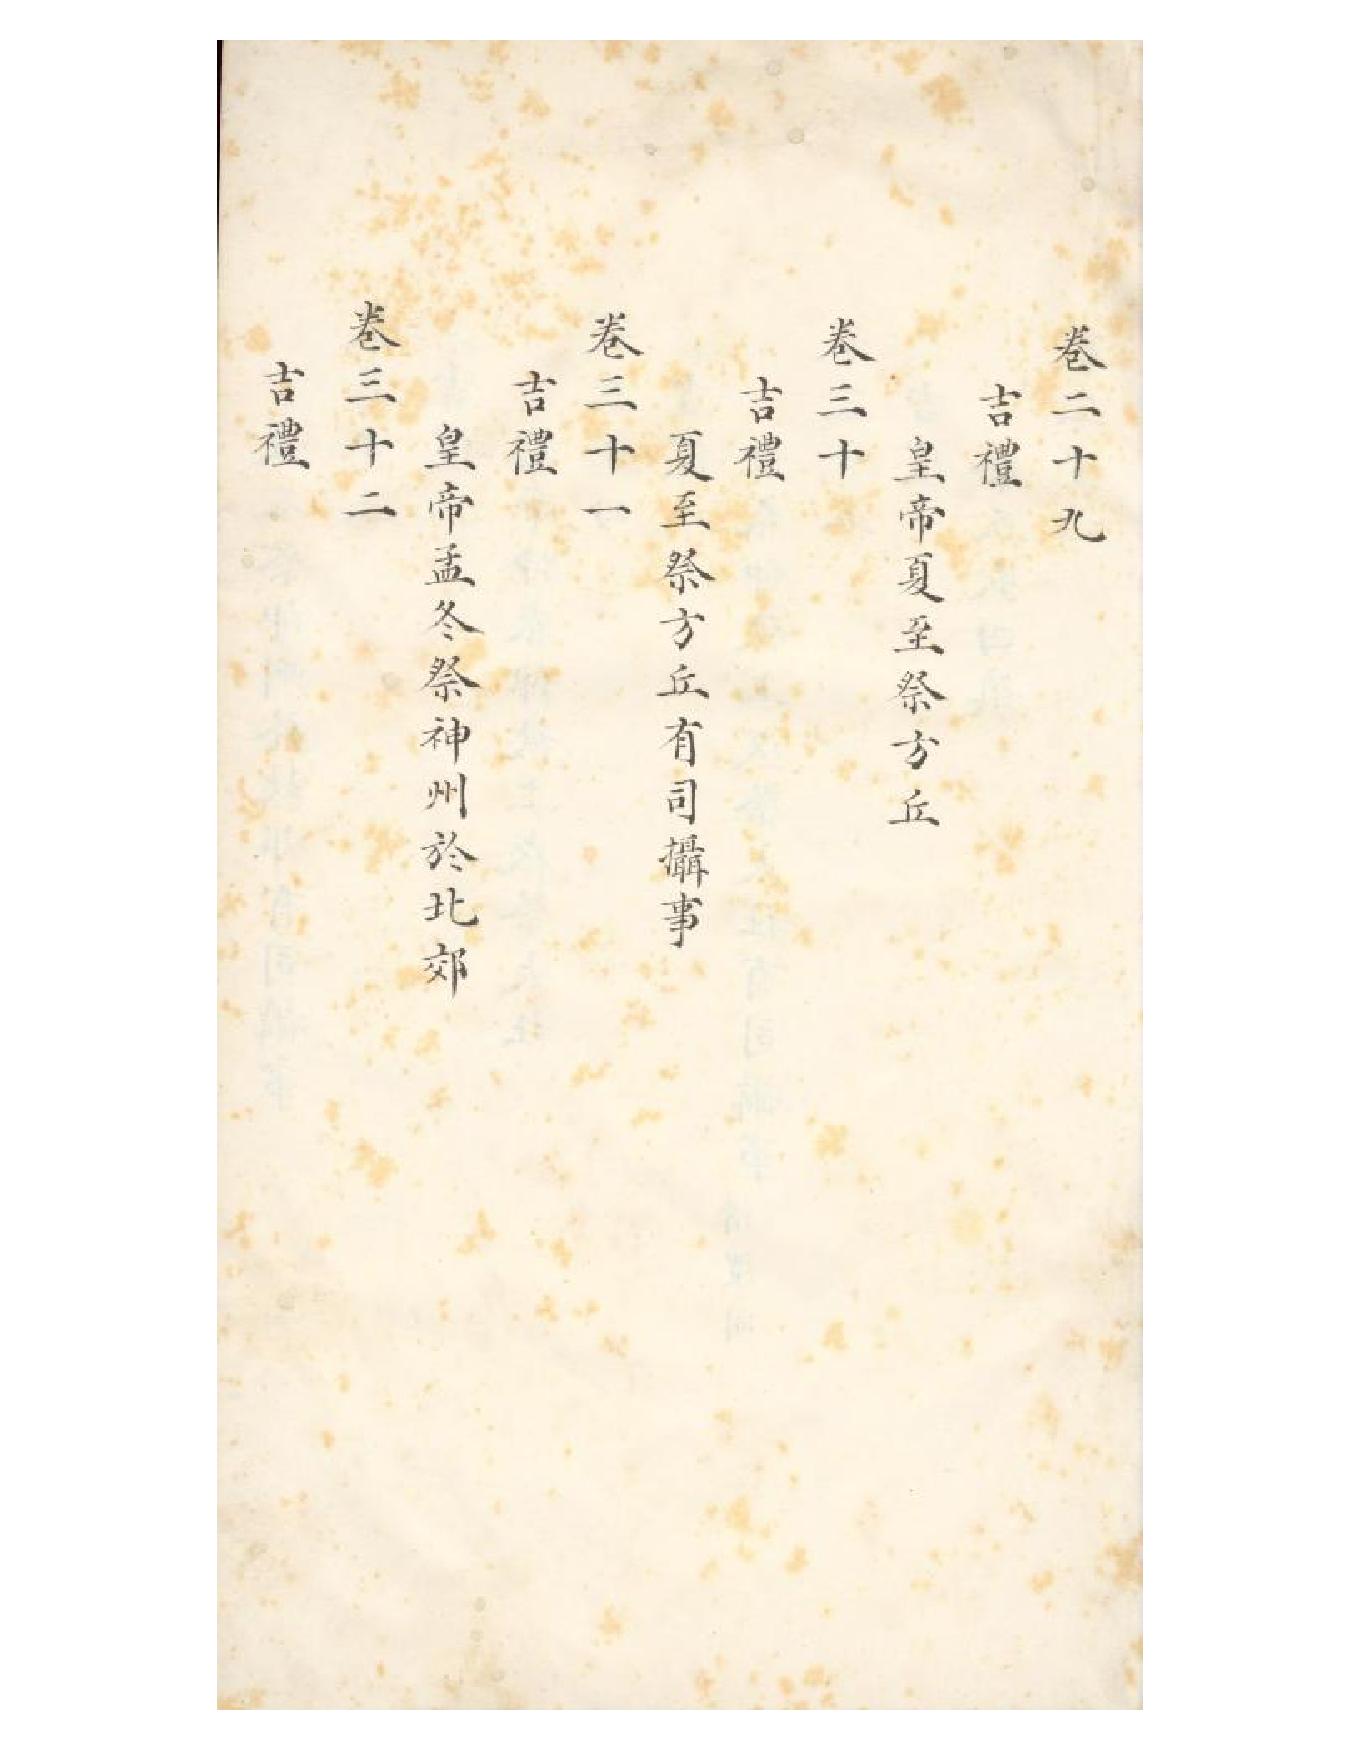 卷二十九
吉禮
皇帝夏至祭方丘
卷三十
吉禮
夏至祭方丘有司攝事
卷三十一
吉禮
皇帝孟冬祭神州於北郊
卷三十二
吉禮